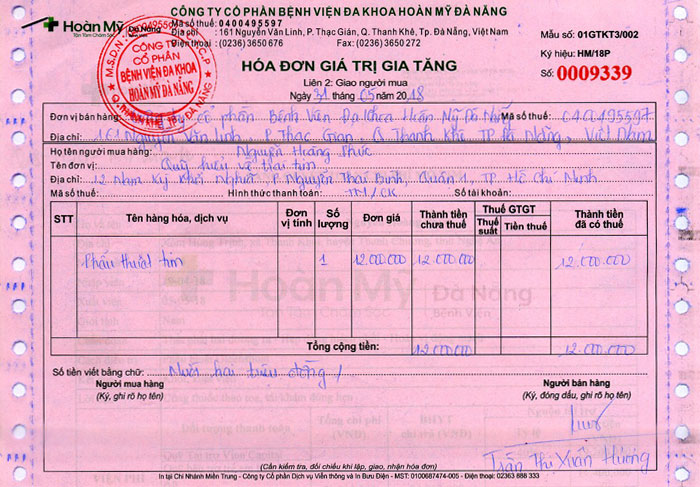 Hoàn Mỹ Đà Nẵng
Tận Tâm Chăm Sóc Bệnh Viện
CÔNG TY CỔ PHẦN BỆNH VIỆN ĐA KHOA HOÀN MỸ ĐÀ NẴNG
Mã số thuế: 0400495597
Địa chỉ: 161 Nguyễn Văn Linh, P. Thạc Gián, Q. Thanh Khê, Tp. Đà Nẵng, Việt Nam
Điện thoại: (0236) 3650 676 Fax: (0236) 3650 272
Mẫu số: 01GTKT3/002
Ký hiệu: HM/18P
Số: 0009339
M.S.D.N: 0400495597-C.T.C.P
CÔNG TY
CỔ PHẦN
BỆNH VIỆN ĐA KHOA
HOÀN MỸ ĐÀ NẴNG
Q. THANH KHÊ - TP. ĐÀ NẴNG
HÓA ĐƠN GIÁ TRỊ GIA TĂNG
Liên 2: Giao người mua
Ngày 31 tháng 05 năm 2018
Đơn vị bán hàng: Công ty cổ phần Bệnh Viện Đa Khoa Hoàn Mỹ Đà Nẵng Mã số thuế: 0400495597
Địa chỉ: 161 Nguyễn Văn Linh, P. Thạc Gián, Q. Thanh Khê TP Đà Nẵng, Việt Nam
Họ tên người mua hàng: Nguyễn Hoàng Phúc
Tên đơn vị: Quỹ hiểu về trái tim
Địa chỉ: 12 Nam Kỳ Khởi Nghĩa, P. Nguyễn Thái Bình, Quận 1, TP Hồ Chí Minh
Mã số thuế: Hình thức thanh toán: TM/CK Số tài khoản:
STT Tên hàng hóa, dịch vụ Đơn vị tính Số lượng Đơn giá Thành tiền chưa thuế Thuế GTGT Thuế suất Tiền thuế Thành tiền đã có thuế
Phẫu thuật tim 1 12.000.000 12.000.000 12.000.000
Hoàn Mỹ Đà Nẵng
Tận Tâm Chăm Sóc Bệnh Viện
Tổng cộng tiền: 12.000.000 12.000.000
Số tiền viết bằng chữ: Mười hai triệu đồng /
Người mua hàng Người bán hàng
(Ký, ghi rõ họ tên) (Ký, đóng dấu, ghi rõ họ tên)
Trần Thị Xuân Hương
(Cần kiểm tra, đối chiếu khi lập, giao, nhận hóa đơn)
In tại Chi Nhánh Miền Trung - Công ty Cổ phần Dịch vụ Viễn thông và In Bưu Điện - MST: 0100687474-005 - Điện thoại: 02363 888 333